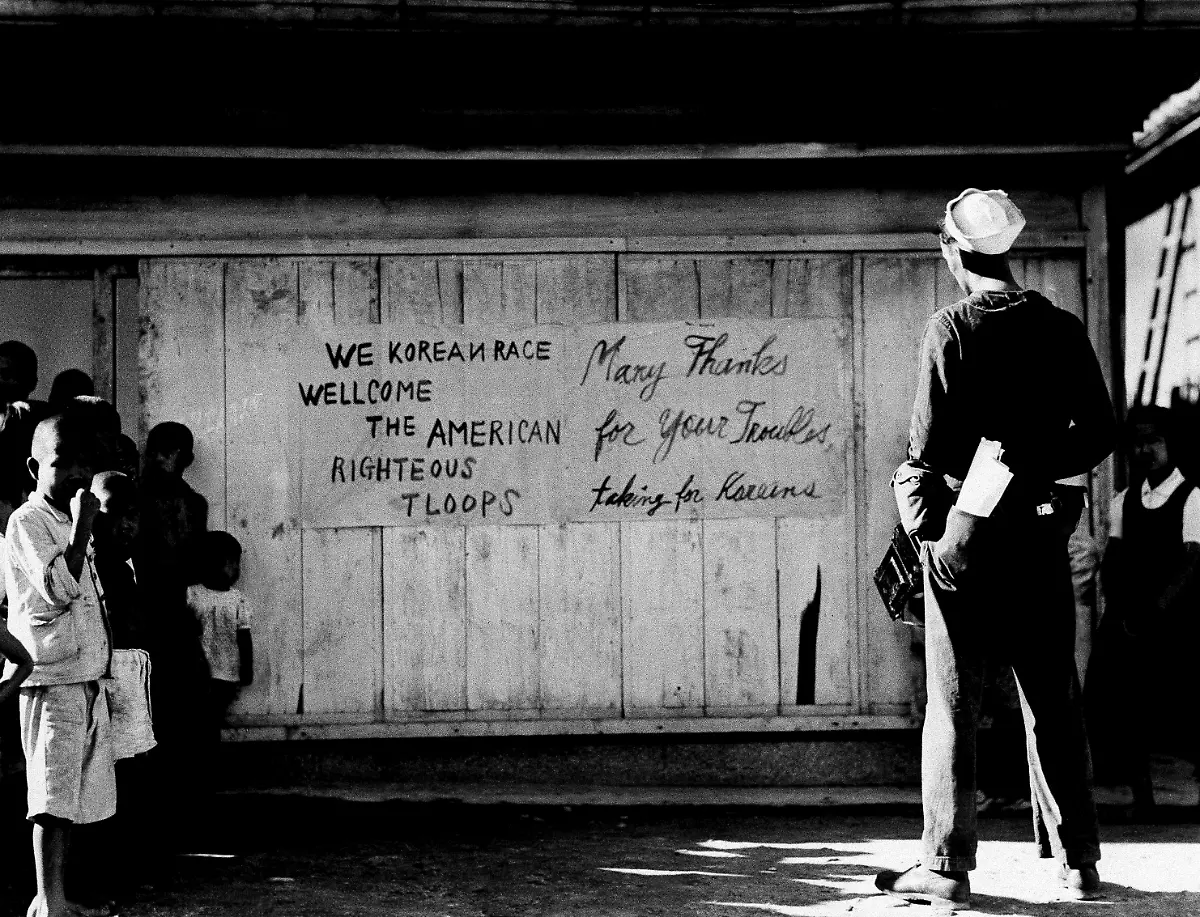 WE KOREAN RACE
WELLCOME
THE AMERICAN
RIGHTEOUS
TLOOPS
Many Thanks
for Your Troubles,
taking for Koreans